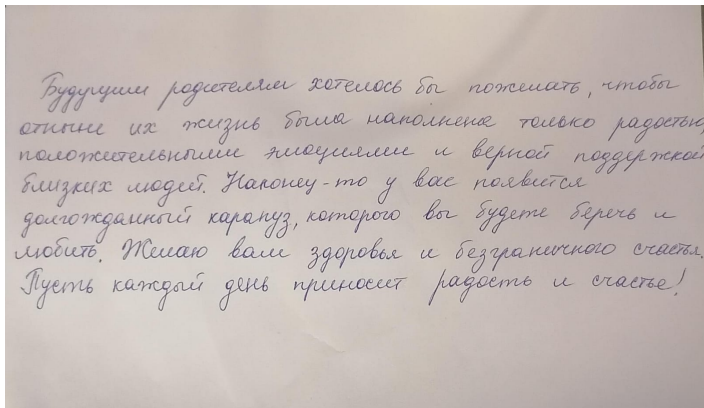 Будущим родителям хотелось бы пожелать, чтобы
отныне их жизнь была наполнена только радостью,
положительными эмоциями и верной поддержкой
близких людей. Наконец-то у вас появится
долгожданный карапуз, которого вы будете беречь и
любить. Желаю вам здоровья и безграничного счастья.
Пусть каждый день приносит радость и счастье!